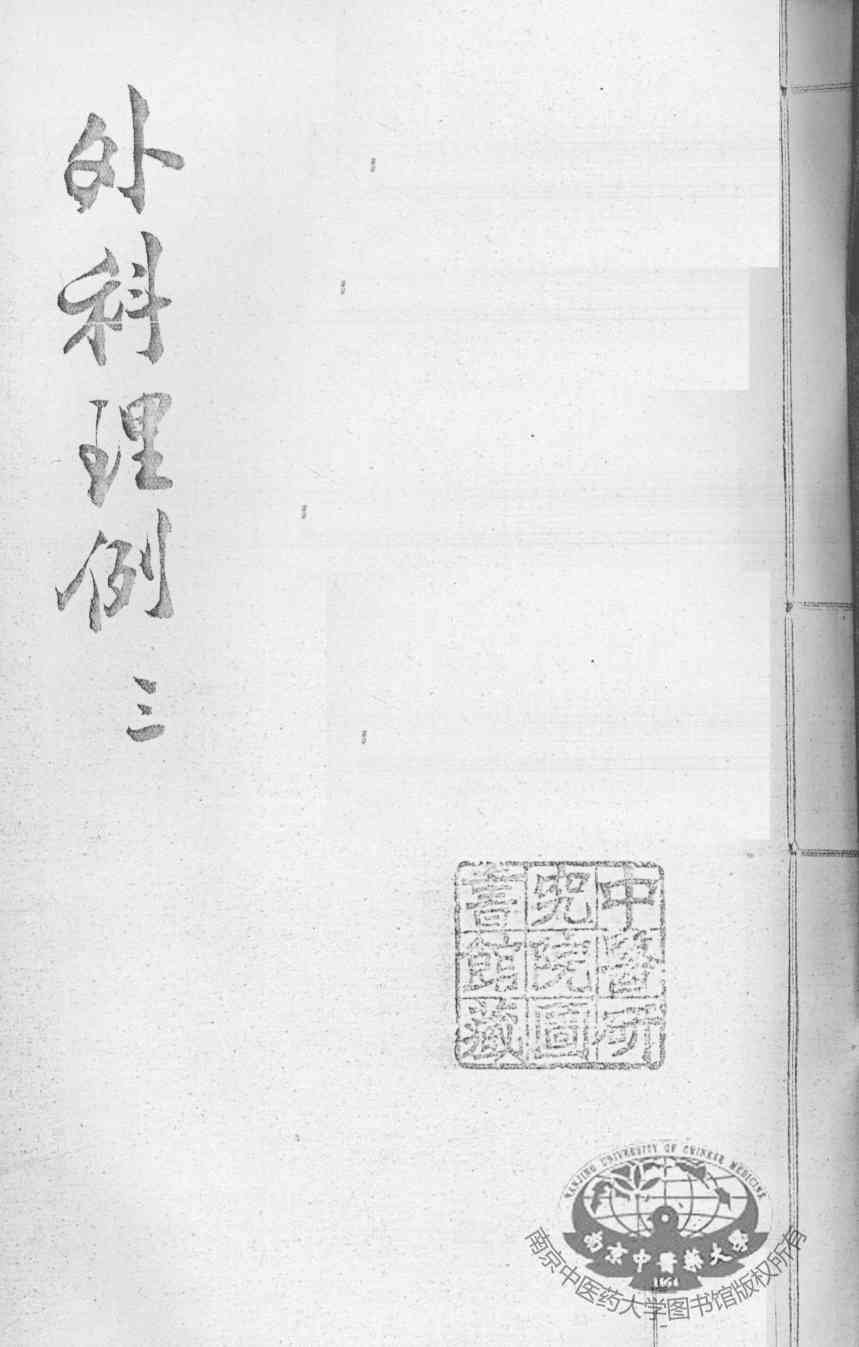 外科理例 三
中醫研
究院圖
書館藏
NANJING UNIVERSITY OF CHINESE MEDICINE
南京中醫藥大學
1954
南京中医药大学图书馆版权所有